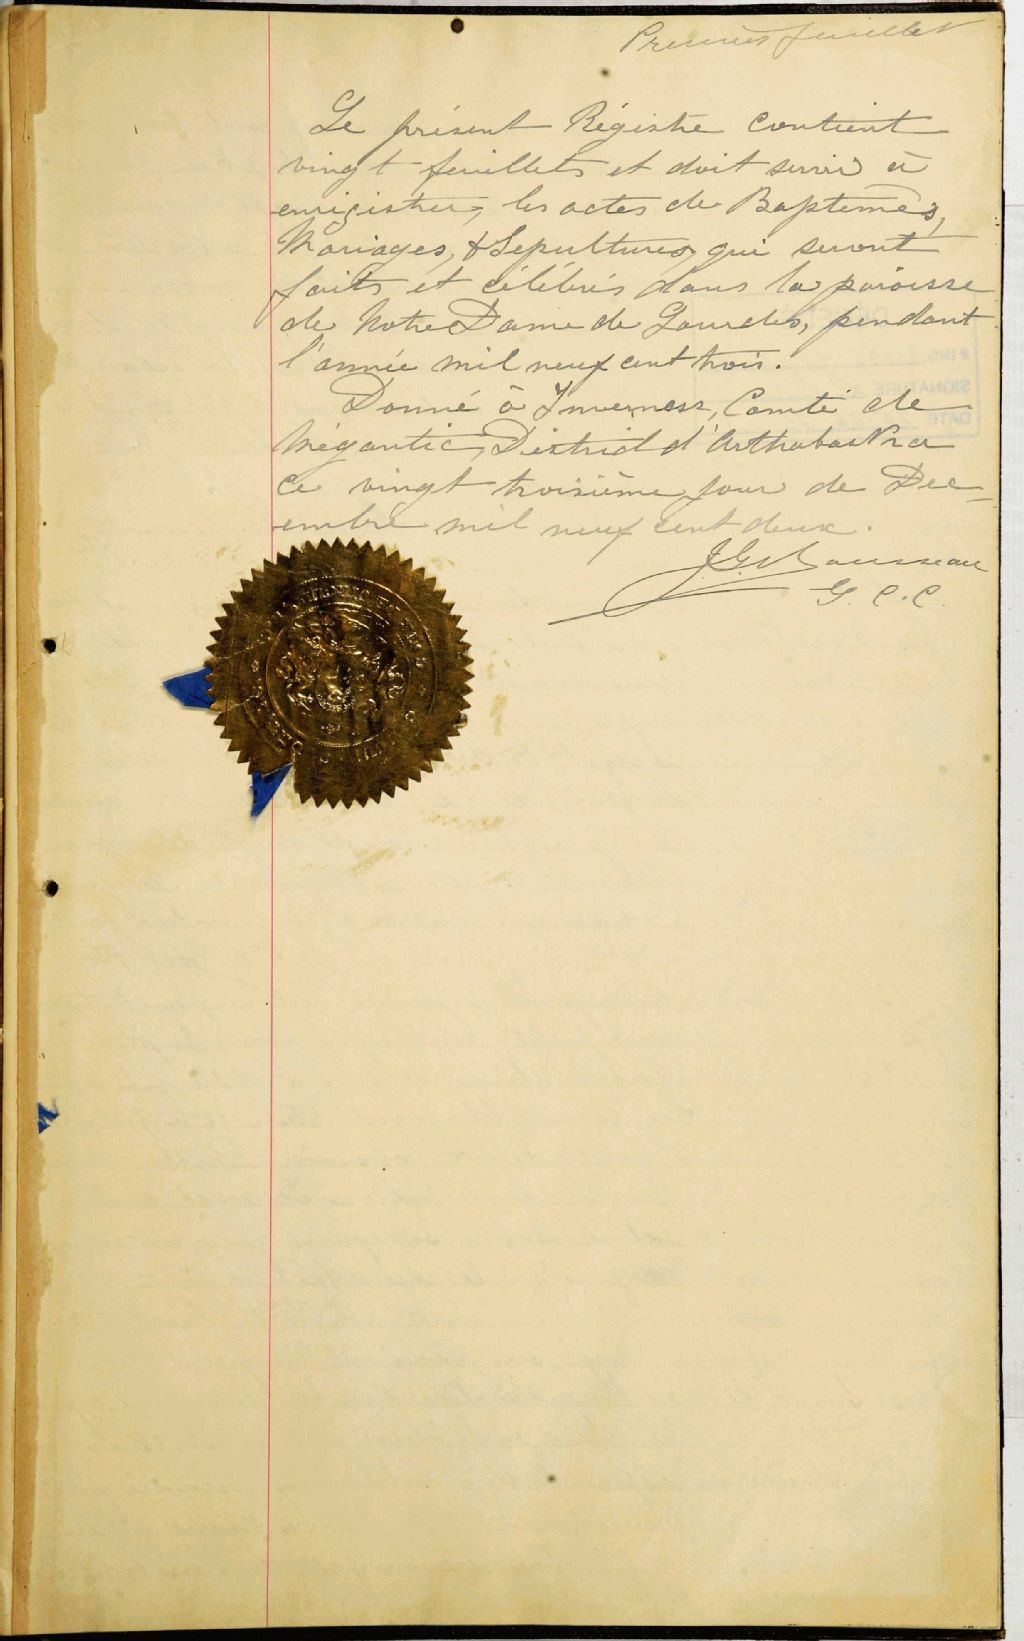 Premier feuillet
Le présent Régistre contient
vingt feuillets et doit servir à
enrigistrer, les actes de Baptêmes,
Mariages, & Sépultures, qui seront
faits et célébrés dans la paroisse
de Notre Dame de Lourdes, pendant
l'année mil neuf cent trois.
Donné à Inverness, Comté de
Mégantic, District d'Arthabaska
ce vingt troisième jour de Dec-
embre mil neuf cent deux.
Rousseau
G. C. C.